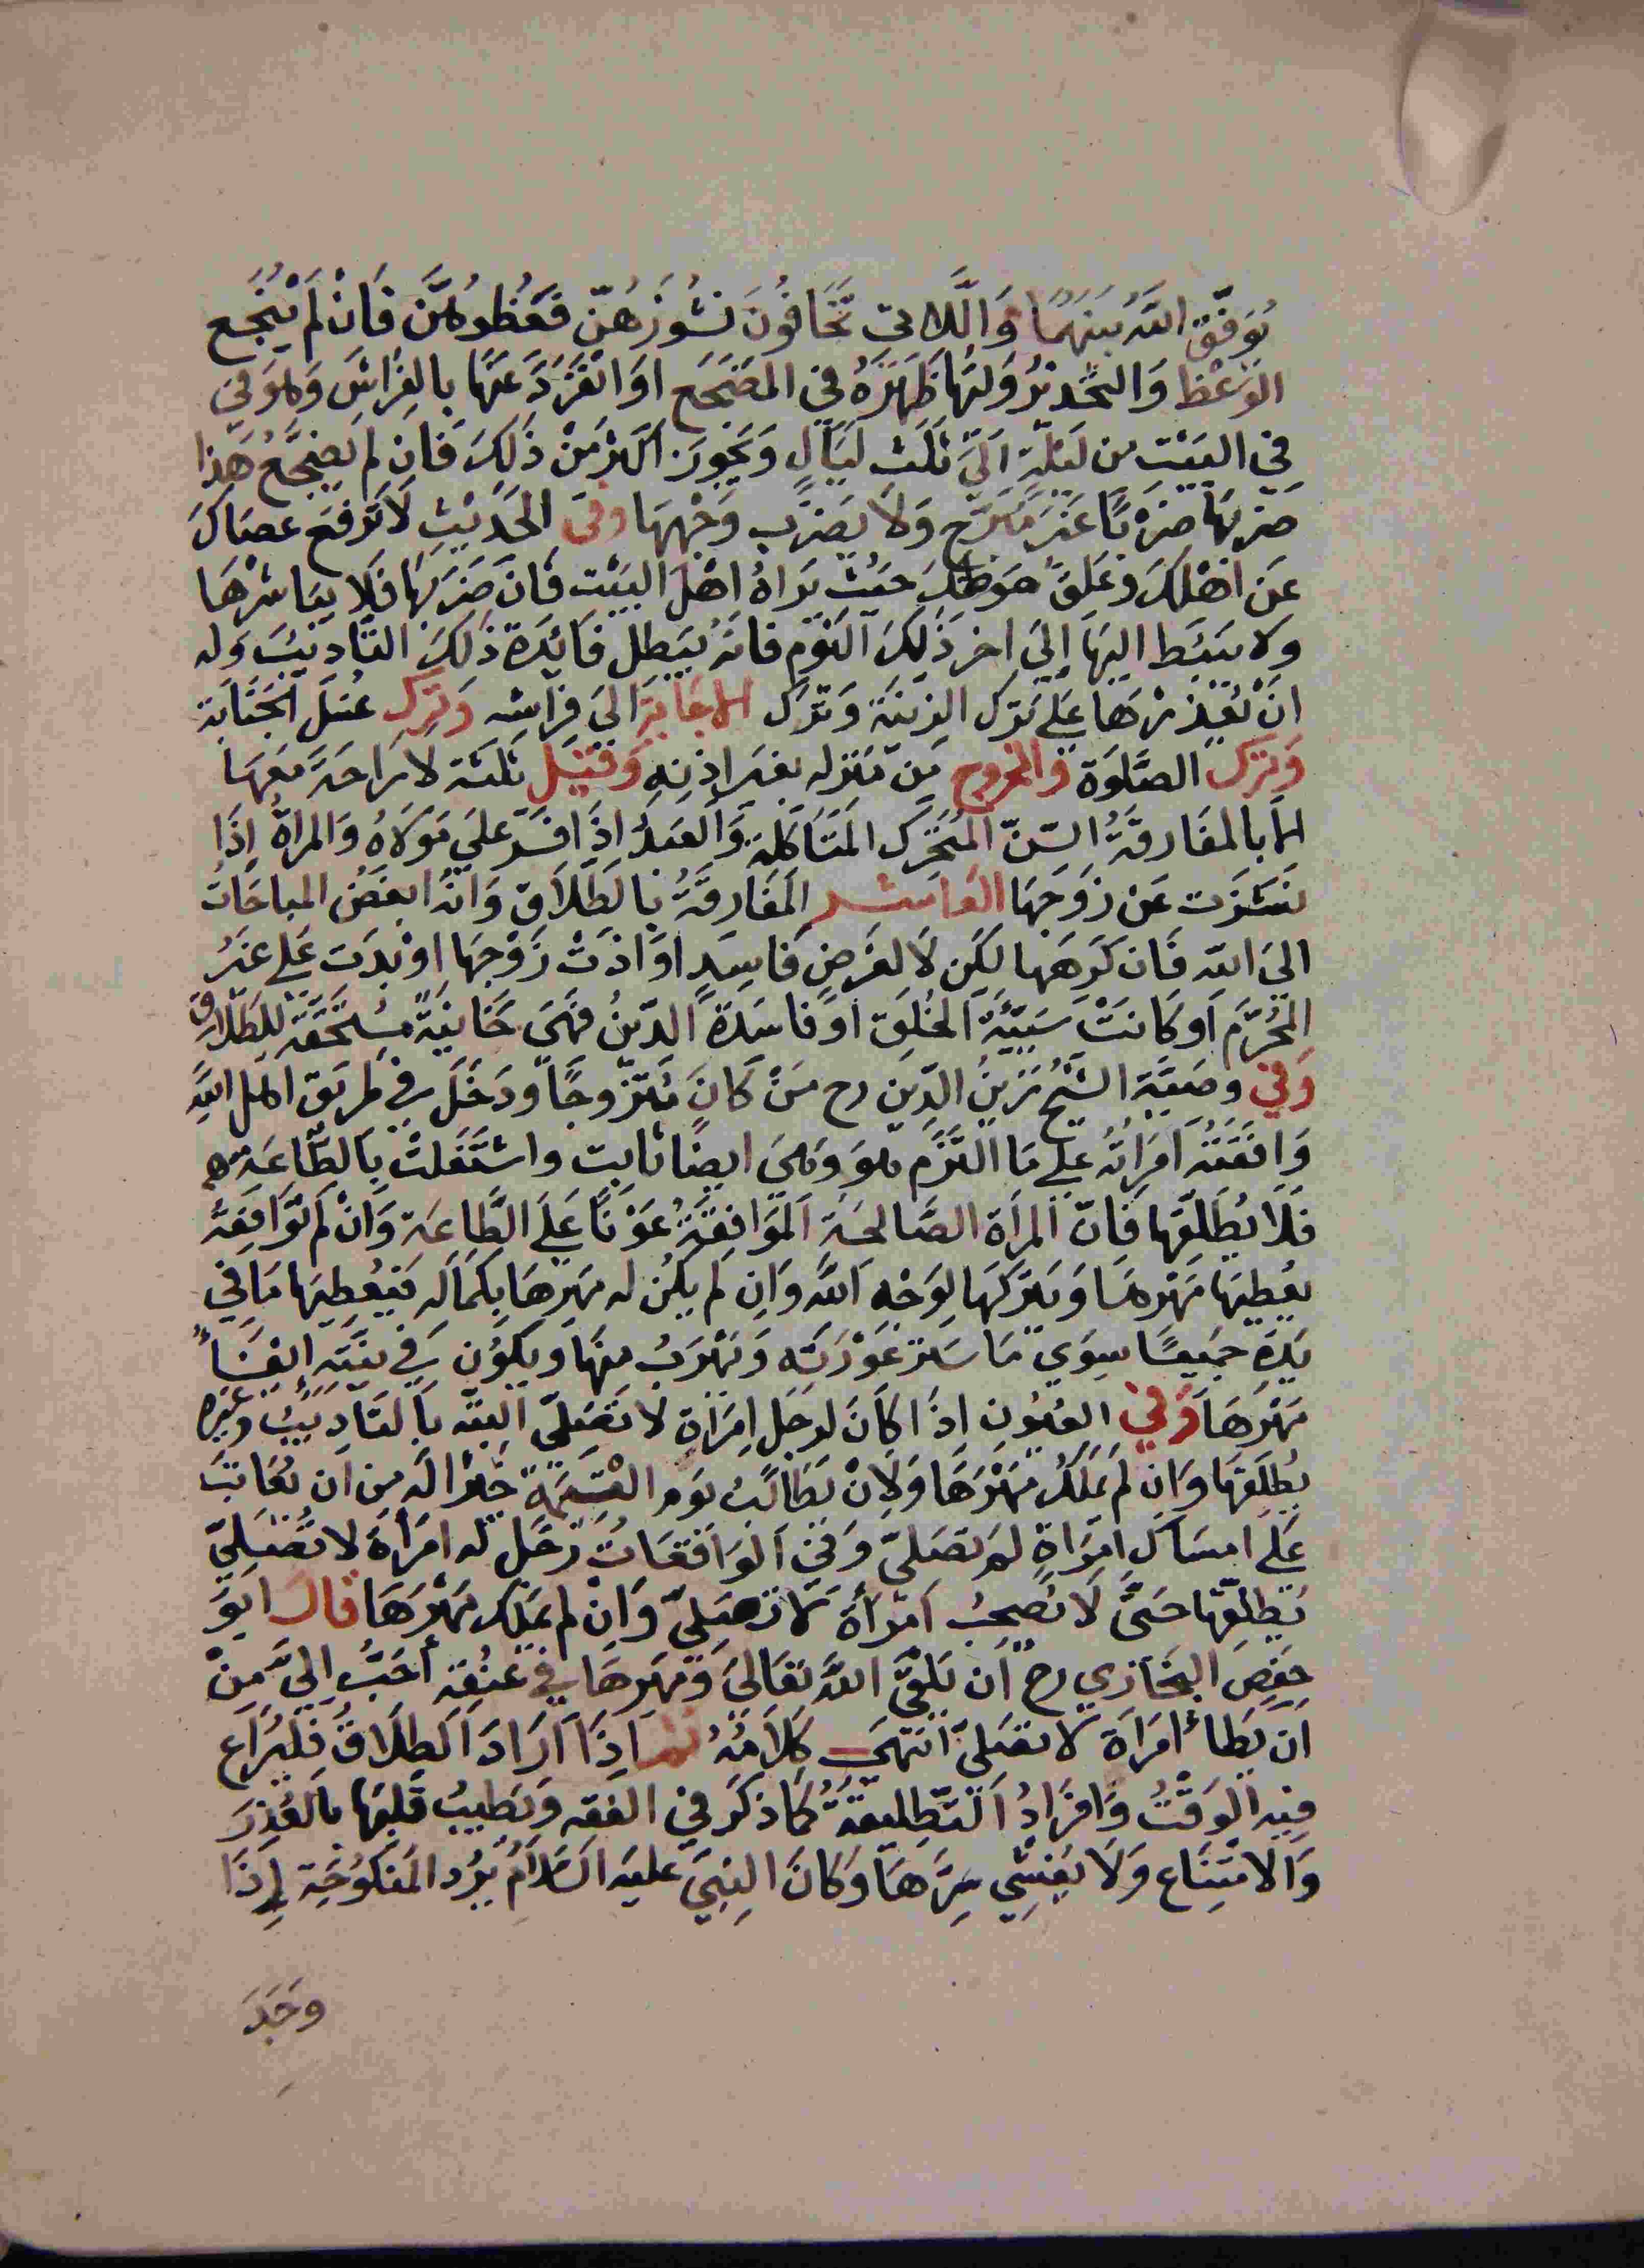 يُوَفّق اللّهُ بينهما وَاللّاتي تَخَافُونَ نشُوزَهُنّ فَعِظُوهُنَّ فَانْ لَمْ يُنجع
الوَعْظ وَالتحذير ولتها ظَهرَهُ في المضجَع اوَ انفَرَدَ عنها بالفِرَاشَ وَهوَ في
في البَيْتِ من ليْلَة الىَ ثَلث ليَالٍ وَيَجُوز اكثرْ مَنْ ذَلِكَ فَانِ لم يضجَع هَذا
ضرَبَهَا ضرْبًا غيَر مُبَرّح وَلاَ يضرَب وَجْهَهَا وفى الحَديْثِ لاَ تَرفع عصَاكَ
عَن اهْلكَ وعَلقْ سَوطكَ حيَثْ يرَاهُ اهْلَ البَيْت فَانَ ضَرَبَهَا فَلاَ يبَاشرْهَا
وَلا ينبَسط اليهَا إلىَ اخر ذَلكَ اليَوْمِ فانهُ يبَطل فَائدَة ذَلِكَ التاديْبَ وَله
انْ يُعَذّرْهَا عَلى تَرْك الزينَة وَتَرْك الاجَابَة الىَ فِرَاشه وَترك غسْلَ الجَنَابَة
وَترك الصَّلوَة وَالخروج مَن مَنزله بغَير اذِنِهِ وَقيْل ثَلثَة لاَ رَاحَةَ معَهَا
الاَّ بالمفَارقَةُ السّنّ المُتحَرّك المتَاكلة وَالعَبْدُ اذَا افسَد عَلىَ مَوْلاَهُ وَالمراةُ اِذَا
نشَزَت عَنْ زَوَجهَا العَاشر المفَارقَةُ بِالطَّلاَق وَانّه ابغَضُ المباحَاتُ
الىَ اللّه فَان كَرهَهَا لكِن لاَ لغَرضِ فَاسِدٍ اوَ اذَتْ زَوْجهَا اوْ بدَت عَلى غيَرُ
المحُرّم اَو كانَتْ سَيّئة الخُلق اوْ فَاسدَة الدّينُ فهَىَ جَانيَة مسُتحَقّة للِطّلاق
وَفي وصيَّة الشيْخُ زَينُ الدّيَن رح مَنْ كَانَ مُتزَوّجًا ودَخَلَ فى طريَق اهل اللّهِ
وَافقَتهُ امرَاتهُ عَلى مَا التَزَم هوَ وَهىَ ايضًا تَابت واشتَغَلتْ بِالطّاعَة
فَلاَ يُطَلقهَا فَانَّ المرأة الصَّالحَة المَوَافِقَةُ عَوْنًا عَلَى الطَّاعَة وَانْ لم تَوَافقهُ
يعُطيْهَا مَهْرهَا وَيَترُكهَا لِوَجْهِ اللّه وَانِ لم يكن له مَهرهَا بِكمَالِه فيُعطيْهَا مَا في
يَدِهِ جميعًا سِوَي مَا ستر عَوْرَتَه وَيَهْرَبُ منهَا ويكوُن فى نيّته ايفَاءُ
مَهْرَهَا وَفي العُيُونِ اذَا كاَنَ لرجَل اِمرَاة لاَ تصَلّي البتّه باِلتادِيْبُ وغَيره
يُطلّقهَا وَان لمَ يمَلك مَهْرَهَا وَلاِنْ يطَالَبُ يَوم القيمَة خَيرًا لَه مِن ان يُعَاتب
عَلى امسَاك امرَاةٍ لمَ تصَلىّ وَفى الوَاقعَاتُ رَجَل له امرَأة لاَ تصَلّي
يُطلقهَا حَتىّ لاَ تصحُبُ امرَأة لاَ تصَلىّ وَانْ لم يمَلك مَهْرَهَا قَال ابوَ
حفِص البخَاري رح ان يَلقَى اللّه تعَالىَ وَمهرهَا فى عنقه اُحبُّ الىَّ مِنْ
اَن يَطأ امرَاة لاَ تصَلى انتهَى كلاَمُهُ ثم اذَا اَرَادَ الطلاَقُ فليُرَاع
فيه الوَقْتُ وَافرَادُ التَطليقَةُ كمَا ذكَر فى الفقه وَيطَيبُ قلبهَا بالعُذِرَ
وَالامْتِنَاع وَلاَ يفْشي سِرّهَا وَكانَ النبيَ عليه السَّلاَمُ يرُد المنكوُحَة إِذَا
وَجَدَ